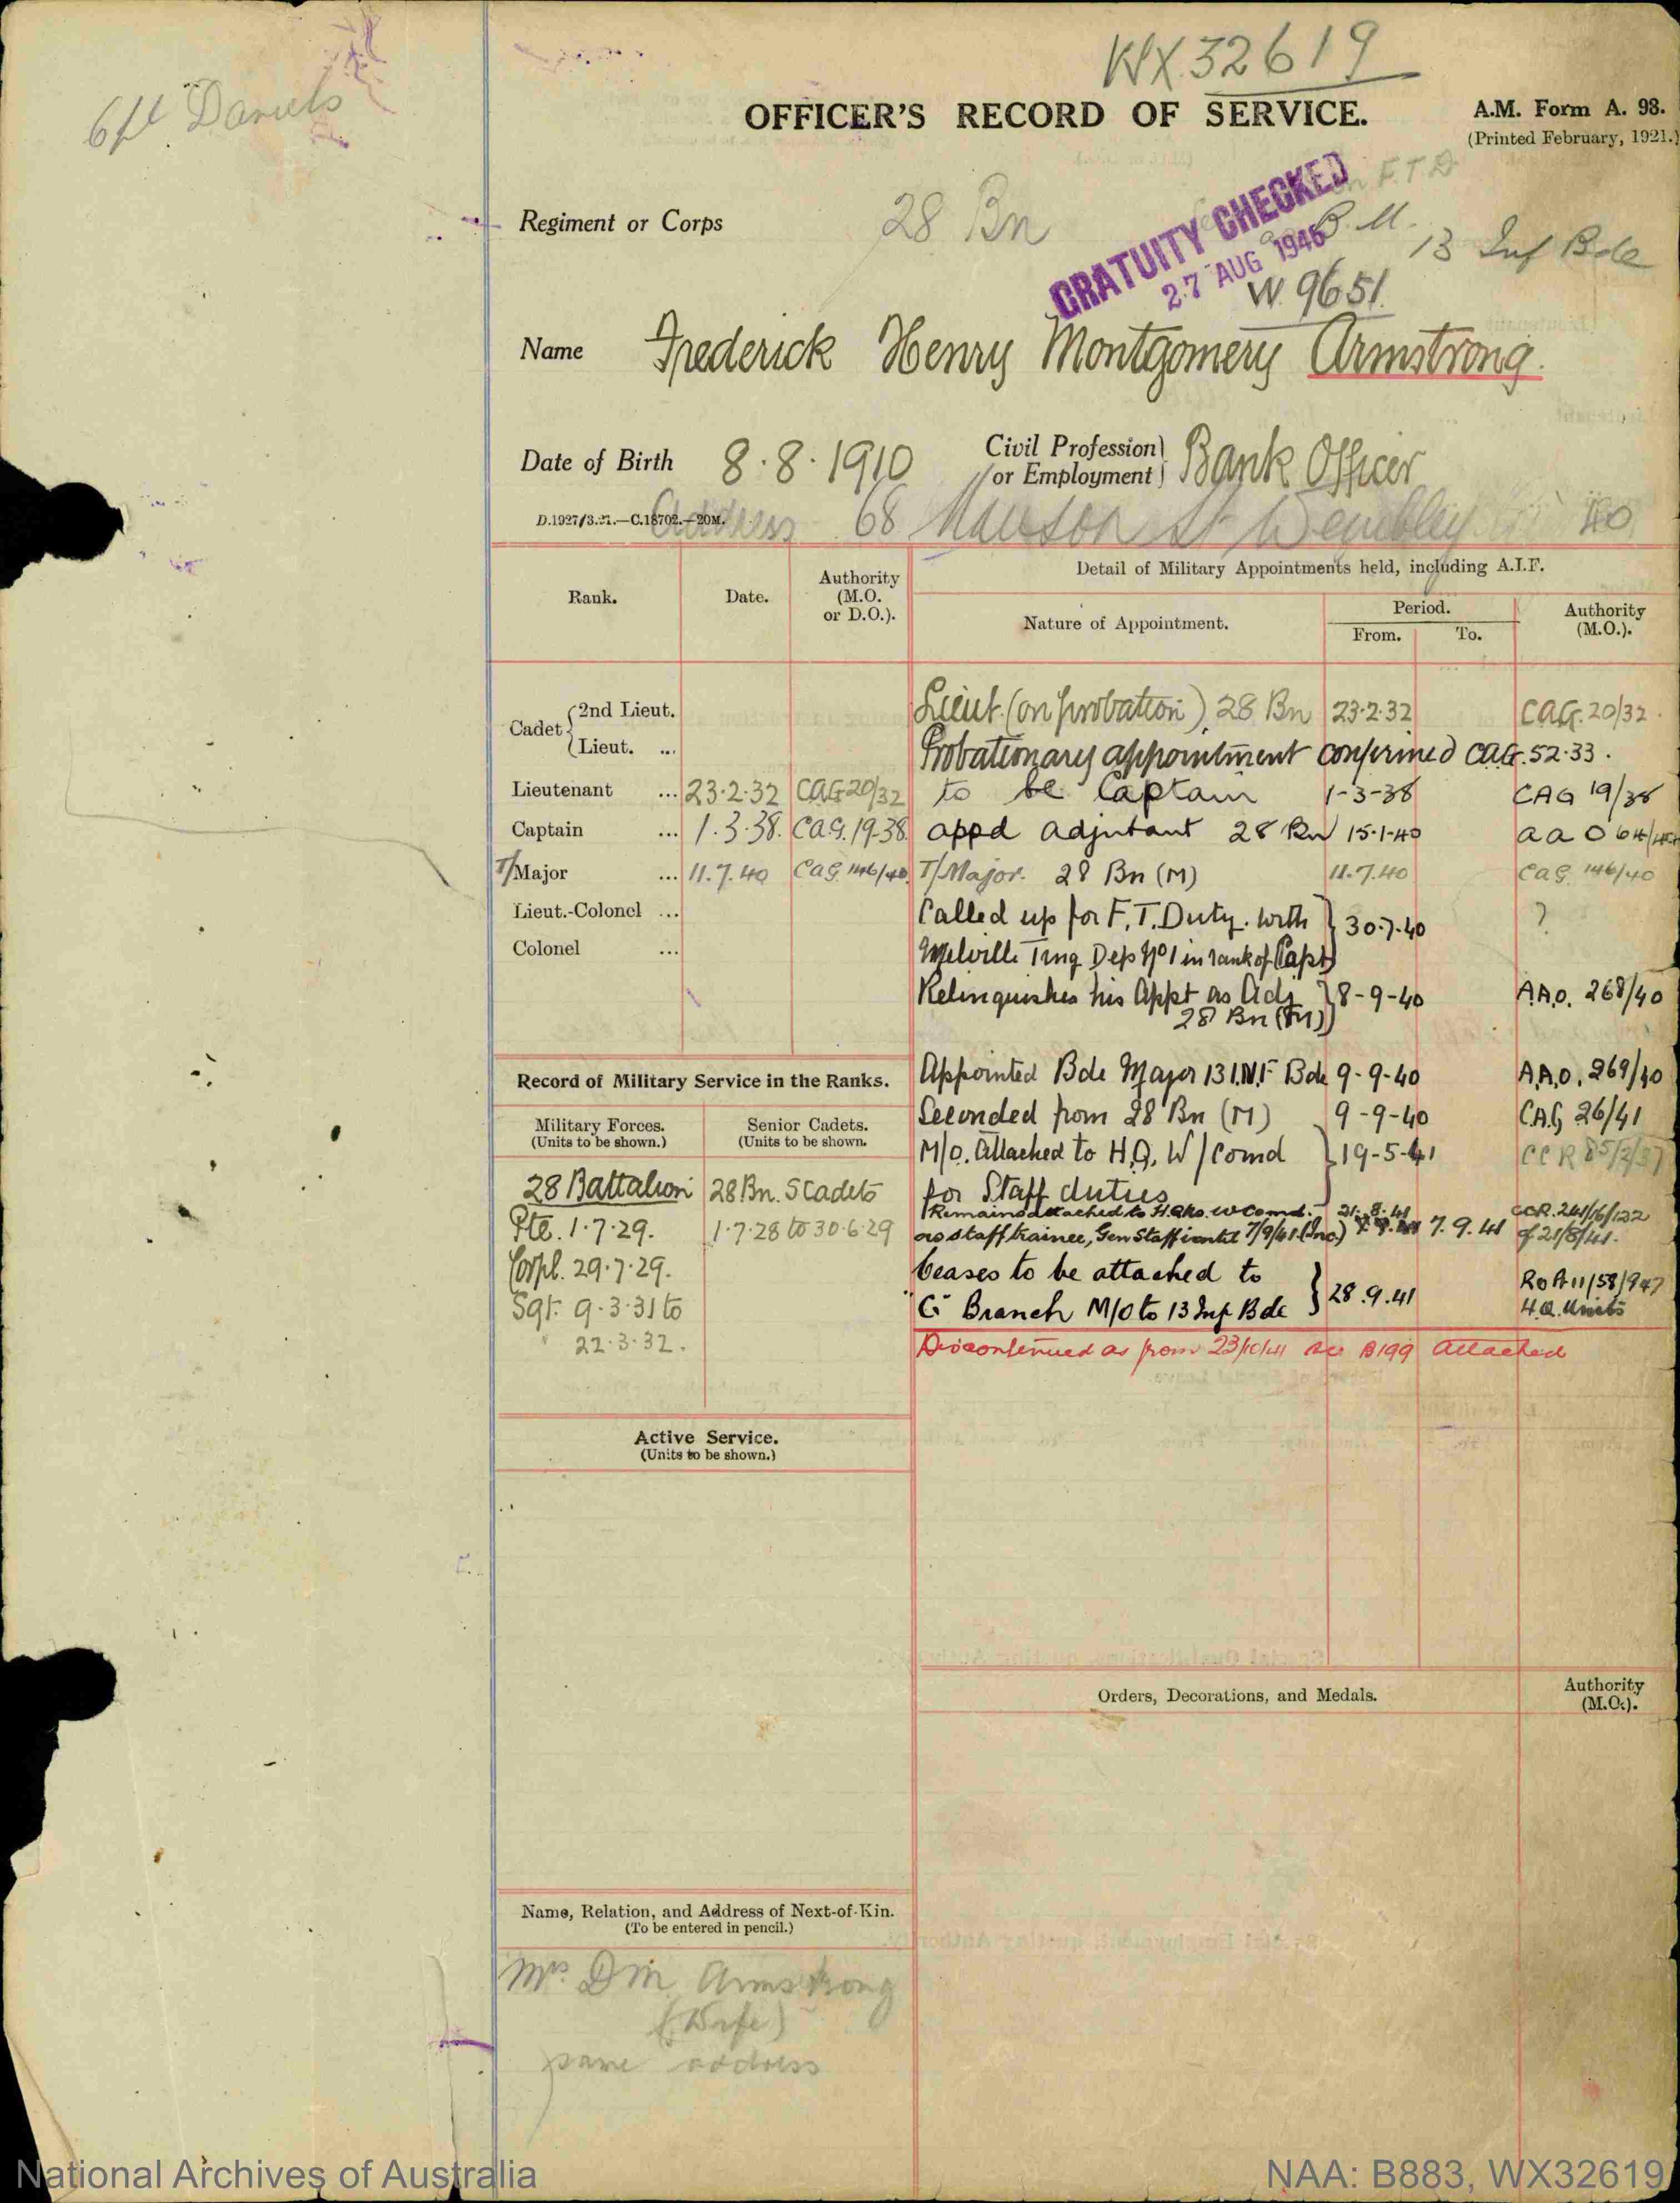 WX32619
OFFICER'S RECORD OF SERVICE.
A.M. Form A. 98.
(Printed February, 1921.)
6ft Daniels
GRATUITY CHECKED
27 AUG 1946
F.T.D
B.M. 13 Inf Bde
Regiment or Corps 28 Bn
W.9651.
Name Frederick Henry Montgomery Armstrong.
Date of Birth 8.8.1910 Civil Profession or Employment Bank Officer
D.1927/3.21.—C.18702.—20M.
Address 68 St Wembley
Rank. Date. Authority (M.O. or D.O.).
Detail of Military Appointments held, including A.I.F.
Nature of Appointment. Period. From. To. Authority (M.O.).
Cadet 2nd Lieut.
Lieut. ...
Lieutenant ... 23.2.32 CAG 20/32
Captain ... 1.3.38. C.A.G. 19.38
T/Major ... 11.7.40 CAG 146/40
Lieut.-Colonel ...
Colonel ...
Lieut. (on probation) 28 Bn 23.2.32 CAG. 20/32.
Probationary appointment confirmed CAG. 52.33.
to be Captain 1-3-38 CAG 19/38
appd Adjutant 28 Bn 15-1-40 AAO
T/Major. 28 Bn (M) 11.7.40 CAG. 146/40
Called up for F.T. Duty. with 30.7.40 ?
Melville Trng Dep No 1 in rank of Capt
Relinquishes his Appt as Adj 8-9-40 A.A.O. 268/40
28 Bn (M)
Appointed Bde Major 13 INF Bde 9-9-40 A.A.O. 269/40
Seconded from 28 Bn (M) 9-9-40 C.A.G 26/41
M/O. Attached to H.Q. W/Comd 19-5-41 CCR
for Staff duties
Remains attached to H.Qrs. W Comd. 21.8.41 CCR. 241/16/122
as staff trainee, Gen Staff until 7/9/41 (Inc.) 7.9.41 of 21/8/41.
Ceases to be attached to
"G" Branch M/O to 13 Inf Bde 28.9.41 RoA 11/58/947
H.Q. Units
Discontinued as from 23/10/41 see B199 attached
Record of Military Service in the Ranks.
Military Forces. (Units to be shown.)
Senior Cadets. (Units to be shown.
28 Battalion 28 Bn. S Cadets
Pte. 1.7.29. 1.7.28 to 30.6.29
Corpl. 29.7.29.
Sgt. 9.3.31 to
" 22.3.32.
Active Service.
(Units to be shown.)
Orders, Decorations, and Medals. Authority (M.O.).
Name, Relation, and Address of Next-of-Kin.
(To be entered in pencil.)
Mrs. D M Armstrong
(Wife)
same address
National Archives of Australia
NAA: B883, WX32619